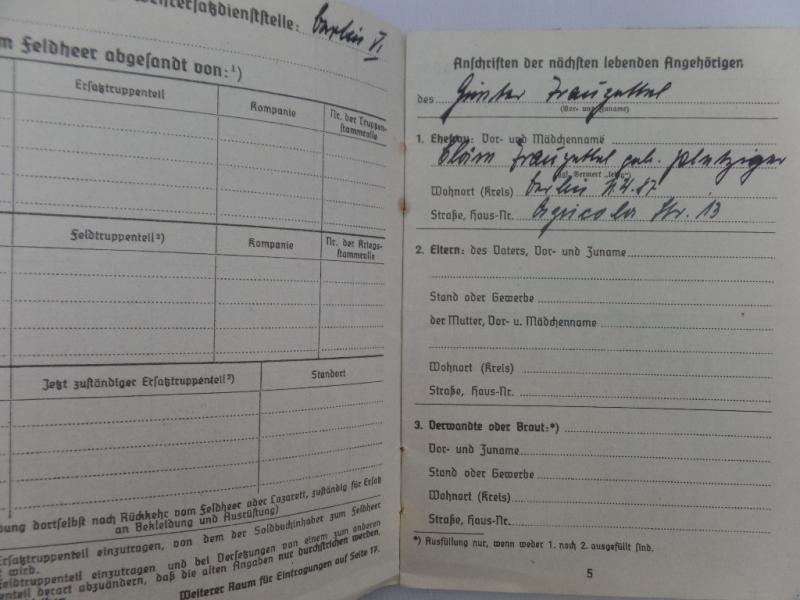 Wehrersatzdienststelle: Berlin V.
m Feldheer abgesandt von:¹)
Ersatztruppenteil
Kompanie
Nr. der Truppen-
stammrolle
Feldtruppenteil²)
Kompanie
Nr. der Kriegs-
stammrolle
Jetzt zuständiger Ersatztruppenteil³)
Standort
dung dortselbst nach Rückkehr vom Feldheer oder Lazarett, zuständig für Ersatz
an Bekleidung und Ausrüstung)
Ersatztruppenteil einzutragen, von dem der Soldbuchinhaber zum Feldheer
t wird.
Feldtruppenteil einzutragen und bei Versetzungen von einem zum anderen
penteil derart abzuändern, daß die alten Angaben nur durchstrichen werden,
Weiterer Raum für Eintragungen auf Seite 17.
Anschriften der nächsten lebenden Angehörigen
des Günter Trauzettel
(Vor- und Zuname)
1. Ehefrau: Vor- und Mädchenname
Trauzettel geb.
(ggf. Vermerk „ledig")
Wohnort (Kreis) Berlin N.W. 87
Straße, Haus-Nr. Agricola Str. 13
2. Eltern: des Vaters, Vor- und Zuname
Stand oder Gewerbe
der Mutter, Vor- u. Mädchenname
Wohnort (Kreis)
Straße, Haus-Nr.
3. Verwandte oder Braut:*)
Vor- und Zuname
Stand oder Gewerbe
Wohnort (Kreis)
Straße, Haus-Nr.
*) Ausfüllung nur, wenn weder 1. noch 2. ausgefüllt sind.
5